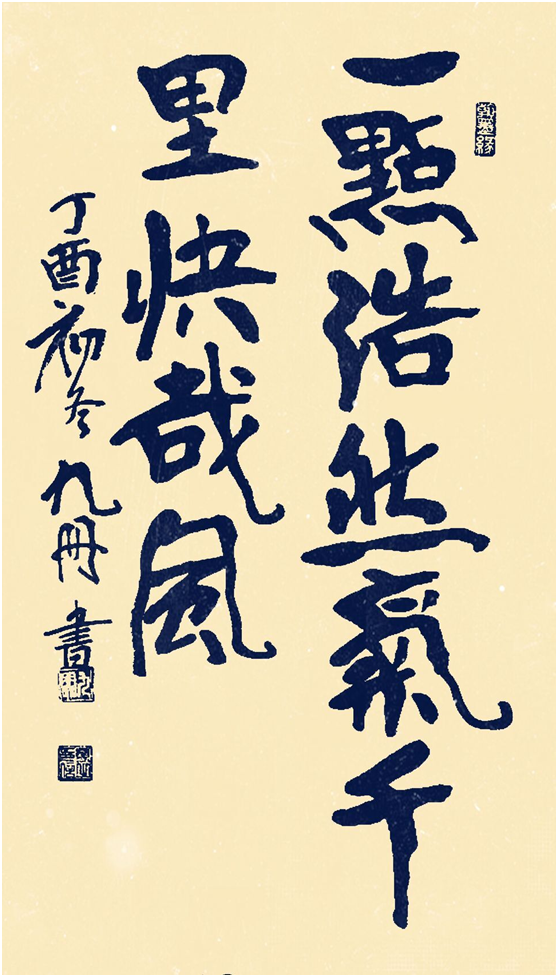 一點浩然氣千
里快哉風
丁酉初冬九冊書